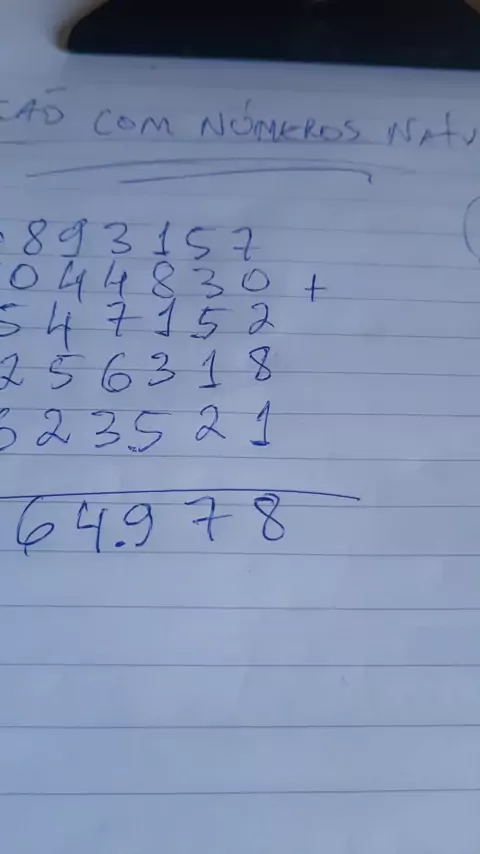 ÇÃO COM NÚMEROS NATU
893157
044830 +
547152
256318
623.521
64.978